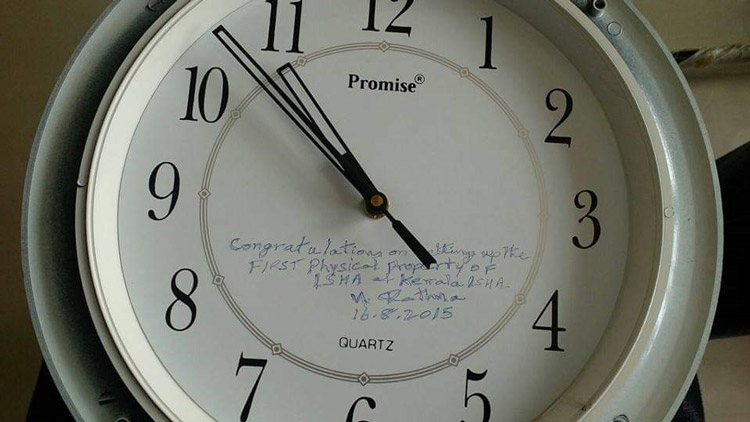 12
11
1
10
Promise®
2
9
3
Congratulations on setting up the
FIRST Physical Property of
ISHA at Kerala ISHA.
M. Rathna
16.8.2015
8
4
QUARTZ
7
5
6